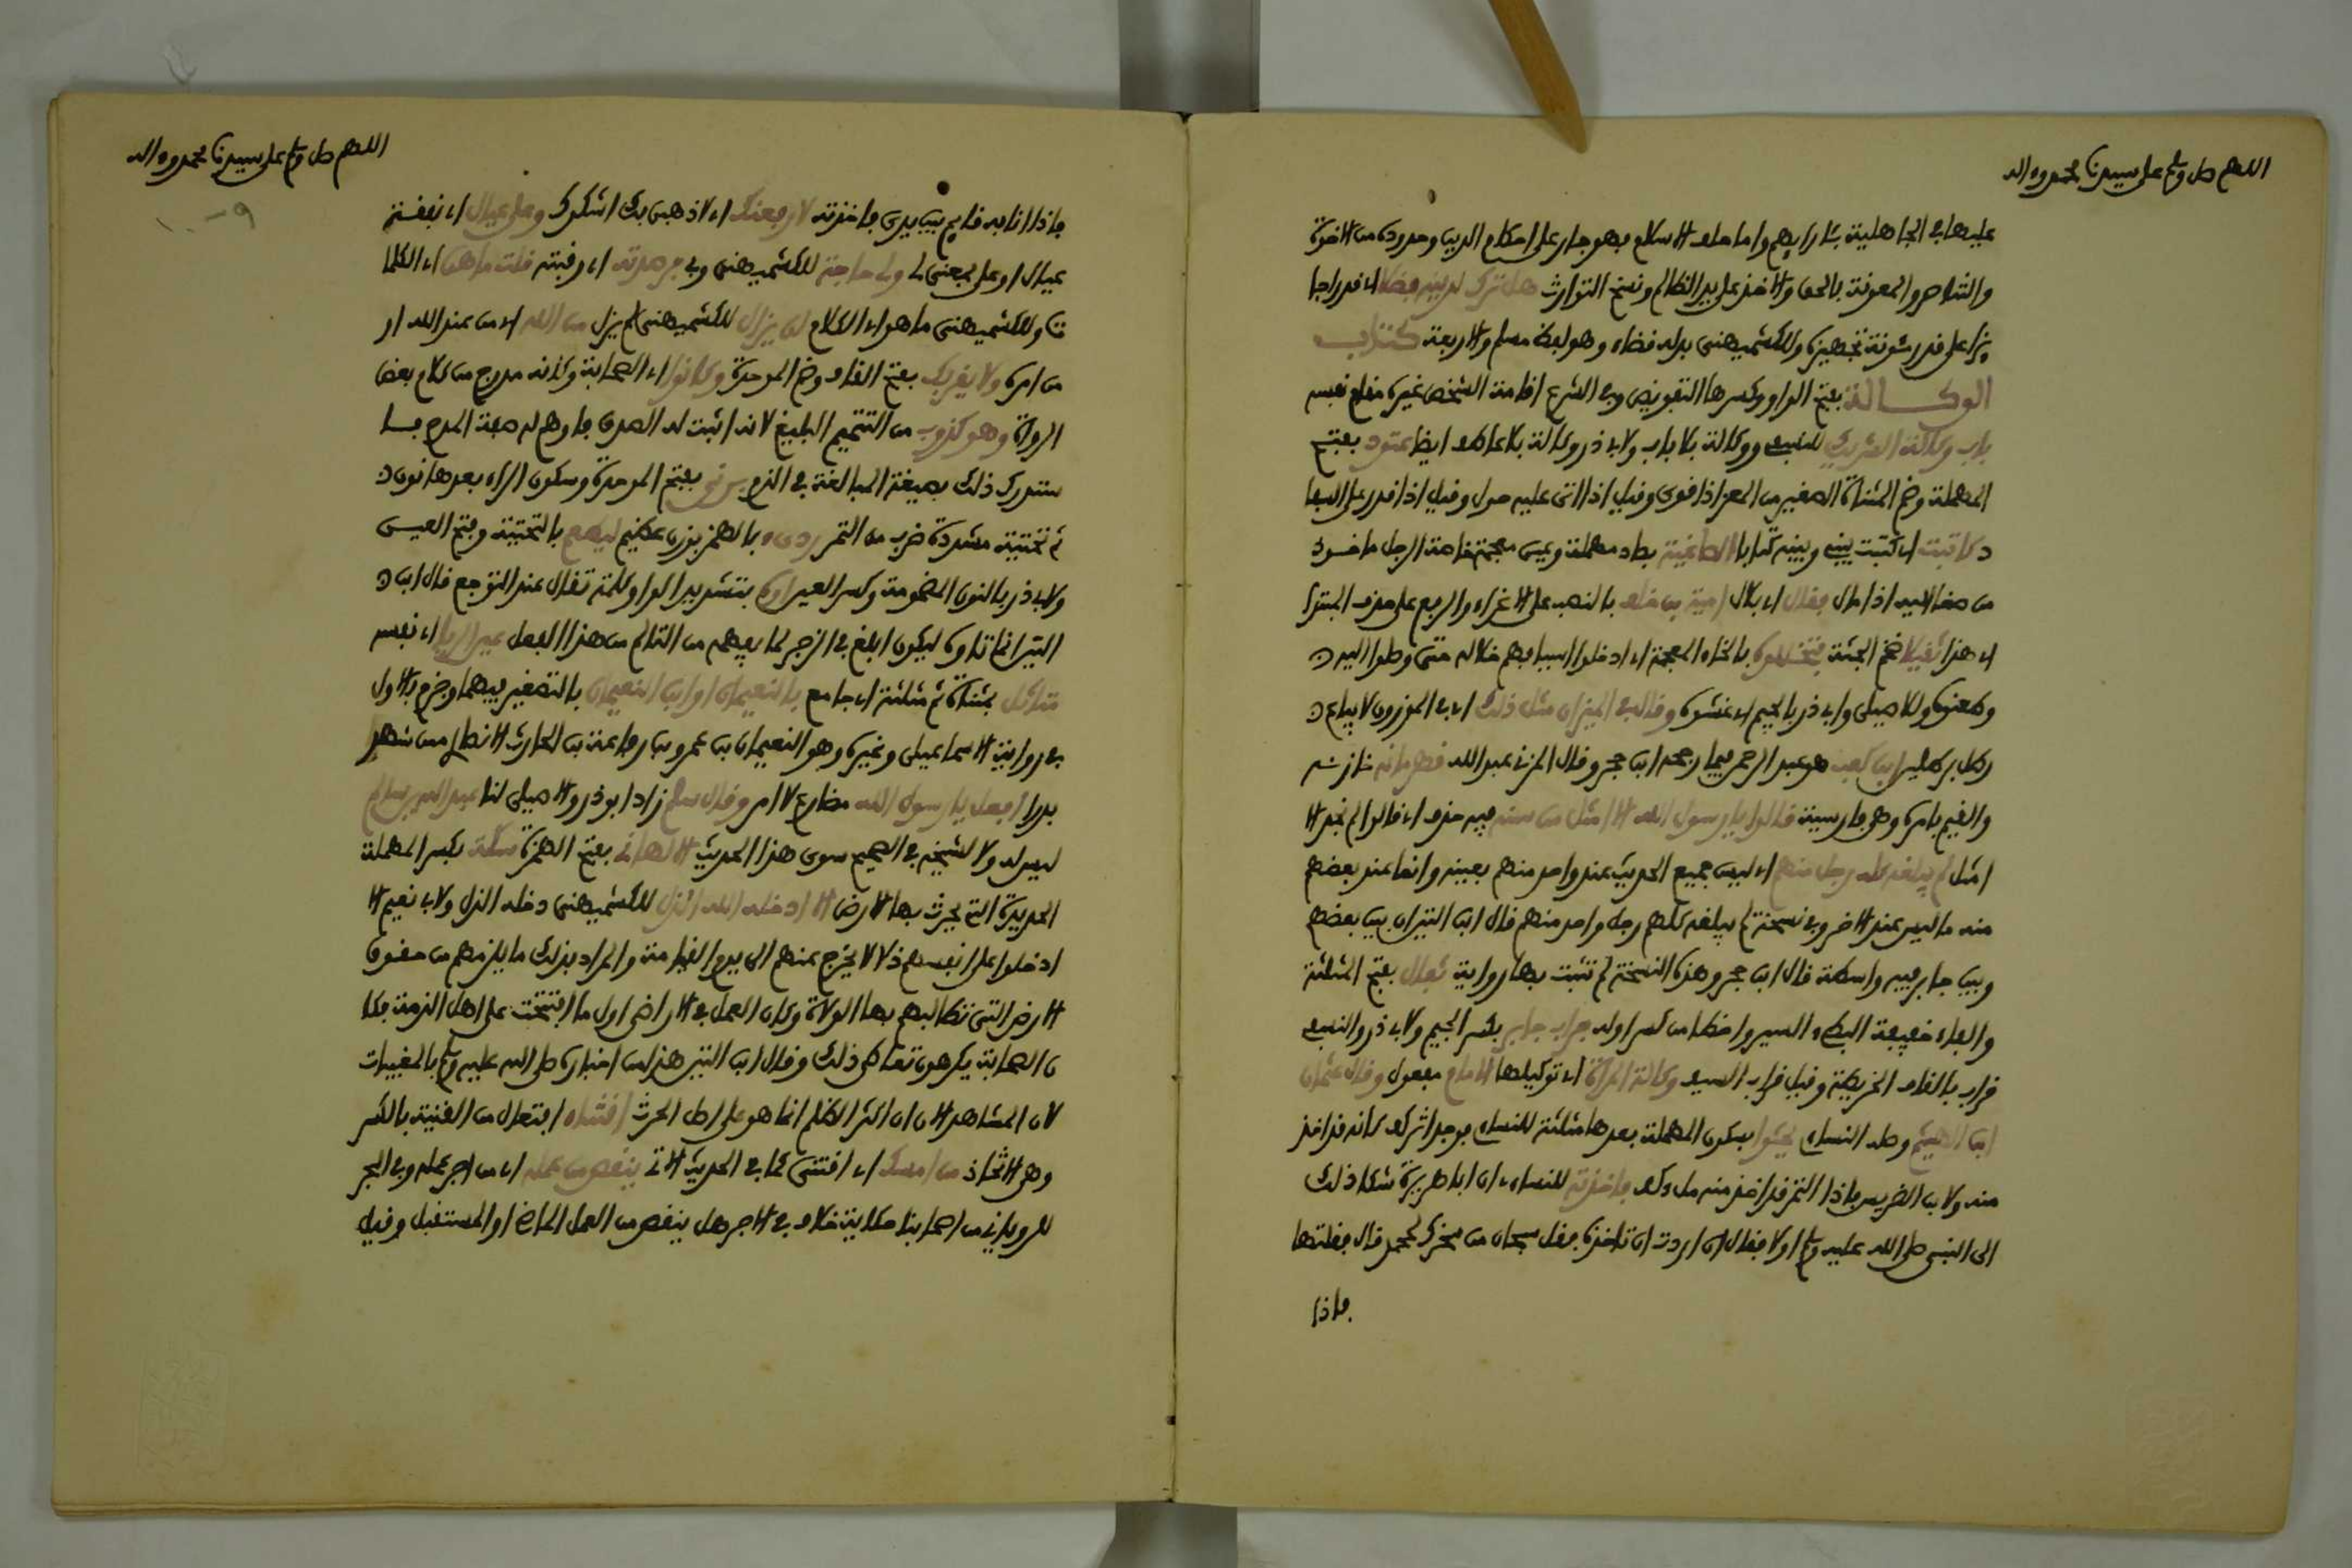 اللهم صل وسلم على سيدنا محمد وءاله
عليها في الجاهلية بآرايهم واما حلف الاسلام فهو جار على احكام الدين وحدوده من الاخوة
والتناصر والمعونة بالحق والاخذ على يد الظالم ونسخ التوارث هل ترك لدينه فضلا اي قدرا زا
يدا على قدر مئونة تجهيزه وللكشميهني بدله قضاء وهو لفظ مسلم والاربعة كتاب
الوكالة بفتح الواو وكسرها التفويض وفي الشرع اقامة الشخص غيره مقام نفسه
باب وكالة الشريك للنسفي ووكالة بلا باب ولابي ذر وكالة بلا عاطف ايضا عتود بفتح
المهملة وضم المثناة الصغير من المعز اذا قوي وقيل اذا اتى عليه حول وقيل اذا قدر على السفا
د كاتبت اي كتبت بيني وبينه كتابا الصاغية بصاد مهملة وغين معجمة خاصة الرجل ماخوذ
من صغا اليه اذا مال فقال اي بلال امية بن خلف بالنصب على الاغراء والرفع على حذف المبتدا
اي هذا ثقيلا ضخم الجثة فتخللوه بالخاء المعجمة اي ادخلوا اسيافهم خلاله حتى وصلوا اليه
وطعنوه وللاصيلي وابي ذر بالجيم اي غشوه وقال في الميزان مثل ذلك اي في الموزون لا يباع
رطل برطلين ابن كعب هو عبد الرحمن فيما رجحه ابن حجر وقال المزي عبد الله قهرمانه خازنه
والقيم بامره وهو فارسية قالوا يا رسول الله الا امثل من سنه فيه حذف اي قالوا لم نجد الا
امثل لم يبلغه كله رجل منهم اي ليس جميع الحديث عند واحد منهم بعينه وانما عند بعضهم
منه ما ليس عند الاخر وفي نسخة لم يبلغه كلهم رجل واحد منهم قال ابن التين اي بين بعضهم
وبين جابر فيه واسطة قال ابن حجر وهذه النسخة لم تثبت بها رواية ثفال بفتح المثلثة
والفاء خفيفة البطيء السير واخطا من كسر اوله جراب جابر بكسر الجيم ولابي ذر والنسفي
قراب بالقاف الخريطة وقيل قراب السيف وكالة المراة اي توكيلها الامام مفعول وقال عثمان
ابن الهيثم وصله النساءي يحثوا بسكون المهملة بعدها مثلثة للنساءي فوجد اثر كف كانه قد اخذ
منه ولابن الضريس فاذا التمر قد اخذ منه ملء كف فاخذته للنساءي ان ابا هريرة شكا ذلك
الى النبي صلى الله عليه وسلم اولا فقال ان اردت ان تاخذه فقل سبحان من سخرك لمحمد قال فقلتها
فاذا
اللهم صل وسلم على سيدنا محمد وءاله
فاذا انا به قايم بين يدي فاخذته لارفعنك اي لاذهبن بك اشكوك وعلي عيال اي نفقة
عيال او على بمعنى لي ولي حاجة للكشميهني وبي فرصدته اي رقبته قلت ما هن اي الكلما
ت وللكشميهني ما هو اي الكلام لن يزال للكشميهني لم يزل من الله اي من عند الله او
من امره ولا يقربك بفتح القاف وضم الموحدة وكانوا اي الصحابة وكانه مدرج من كلام بعض
الرواة وهو كذوب من التتميم البليغ لانه اثبت له الصدق فاوهم له صفة المدح فا
ستدرك ذلك بصيغة المبالغة في الذم برني بفتح الموحدة وسكون الراء بعدها نون
ثم تحتية مشددة ضرب من التمر رديء بالهمز بوزن عظيم ليطعم بالتحتية وفتح العين
ولابي ذر بالنون المضمومة وكسر العين اوه بتشديد الواو كلمة تقال عند التوجع قال ابن
التين انما تاوه ليكون ابلغ في الزجر لما يفهمه من التالم من هذا الفعل عين الربا اي نفسه
متاثل بمثناة ثم مثلثة اي جامع بالنعيمان او ابن النعيمان بالتصغير فيهما وجزم بالاول
في رواية الاسماعيلي وغيره وهو النعيمان بن عمرو بن رفاعة بن الحارث الانصاري ممن شهد
بدرا افعل يا رسول الله مضارع لا امر وقال سلم زاد ابو ذر والاصيلي لنا عبد الله بن سالم
ليس له ولا لشيخه في الصحيح سوى هذا الحديث الالهاني بفتح الهمزة سكة بكسر المهملة
الحديدة التي يحرث بها الارض الا ادخله الله الذل للكشميهني دخله الذل ولابي نعيم الا
ادخلوا على انفسهم ذلا لا يخرج عنهم الى يوم القيامة والمراد بذلك ما يلزمهم من حقوق
الارض التي تطالبهم بها الولاة وكان العمل في الاراضي اول ما افتتحت على اهل الذمة فكا
ن الصحابة يكرهون تعاطي ذلك وقال ابن التين هذا من اخباره صلى الله عليه وسلم بالمغيبات
لان المشاهد الان ان اكثر الظلم انما هو على اهل الحرث اقتناء افتعال من القنية بالكسر
وهو الاتخاذ من امسك اي اقتنى كما في الحديث الاتي ينقص من عمله اي من اجر عمله وفي البحر
للروياني من اصحابنا حكاية خلاف في الاجر هل ينقص من العمل الماضي او المستقبل وقيل